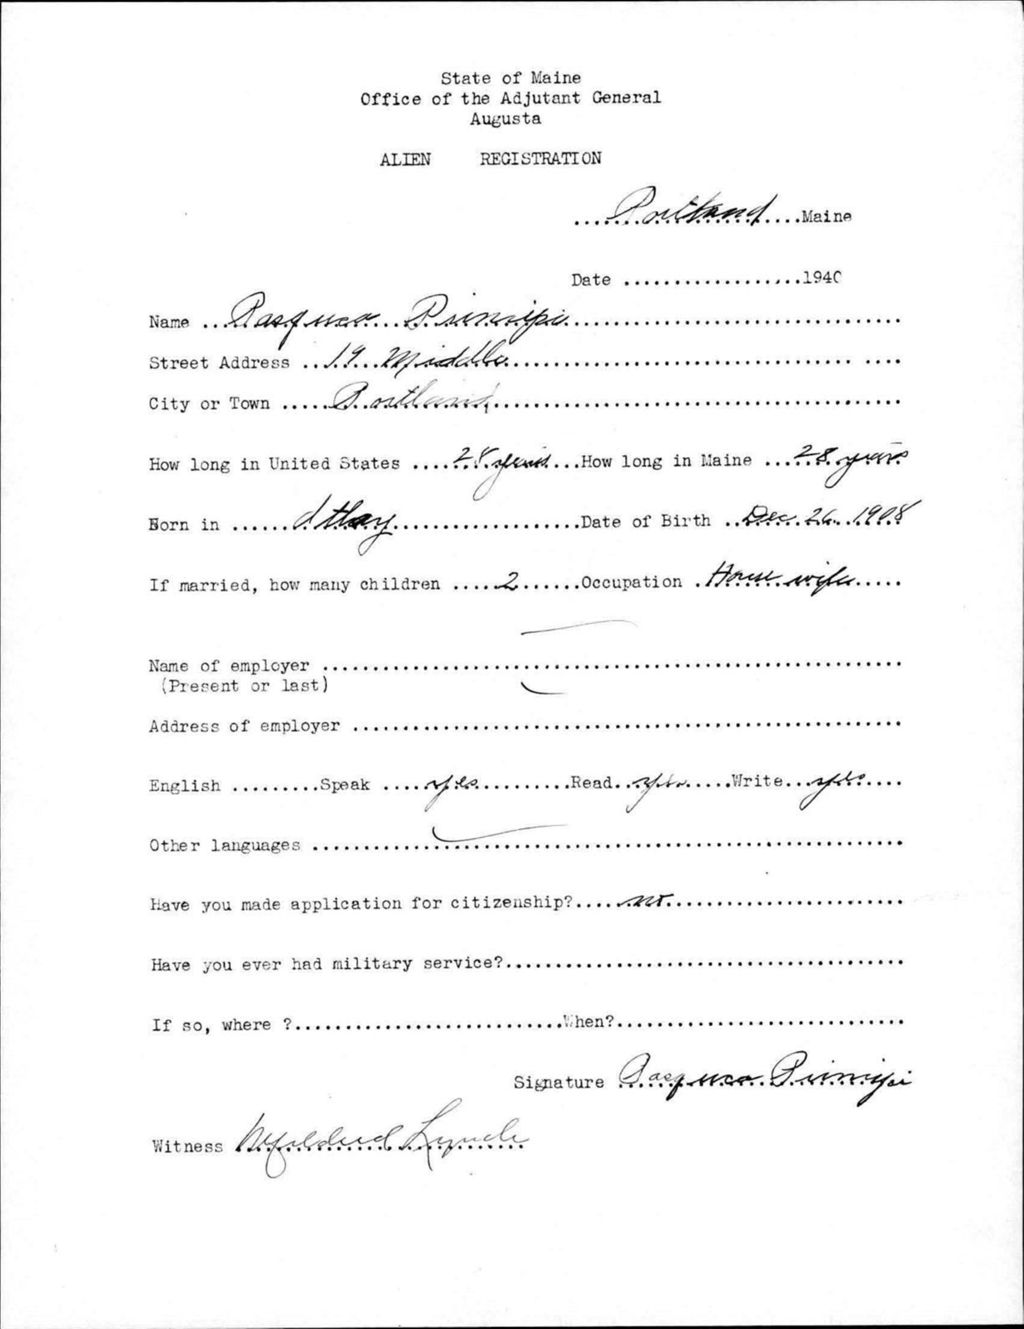 State of Maine
Office of the Adjutant General
Augusta
ALIEN REGISTRATION
....Portland....Maine
Date ..................1940
Name ..Pasqua Principi..
Street Address ...19 Middle...
City or Town .....Portland...
How long in United States ....28 years...How long in Maine ...28 years
Born in ......Italy......Date of Birth ..Dec. 26. 1908
If married, how many children .....2......Occupation .House wife.....
Name of employer ......
(Present or last)
Address of employer ......
English .........Speak ....yes..........Read..yes.....Write...yes....
Other languages ......
Have you made application for citizenship?.....no......
Have you ever had military service?......
If so, where ?......When?......
Signature Pasqua Principi
Witness Mildred Lynch